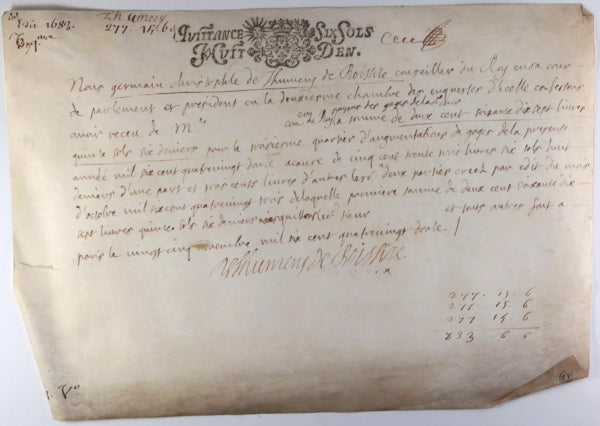 Edit 1683.
Thumery
277. 15. 6
QUITTANCE SIX SOLS
HUIT DEN.
Nous germain christophle de Thumery de Boissize conseiller du Roy en sa cour
de parlement et president en la deuxiesme chambre des enquestes d'icelle confessons
avoir receu de M.re
payeur des gages de lad. cour
la somme de deux cent soixante dix sept livres
quinze sols six deniers pour le troisiesme quartier d'augmentations de gages de la presente
année mil six cent quatrevingt douze acause de cinq cent trente mil livres six sols huit
deniers d'une part et trois cents livres d'autres lesd. deux parties creées par edit du mois
d'octobre mil six cent quatrevingt trois de laquelle premiere somme de deux cent soixante dix
sept livres quinze sols six deniers quittons led. sieur et tous autres fait a
paris le vingt cinq mil six cent quatrevingt douze
Thumery de Boissize
277. 15. 6
277. 15. 6
277. 15. 6
833. 6. 6